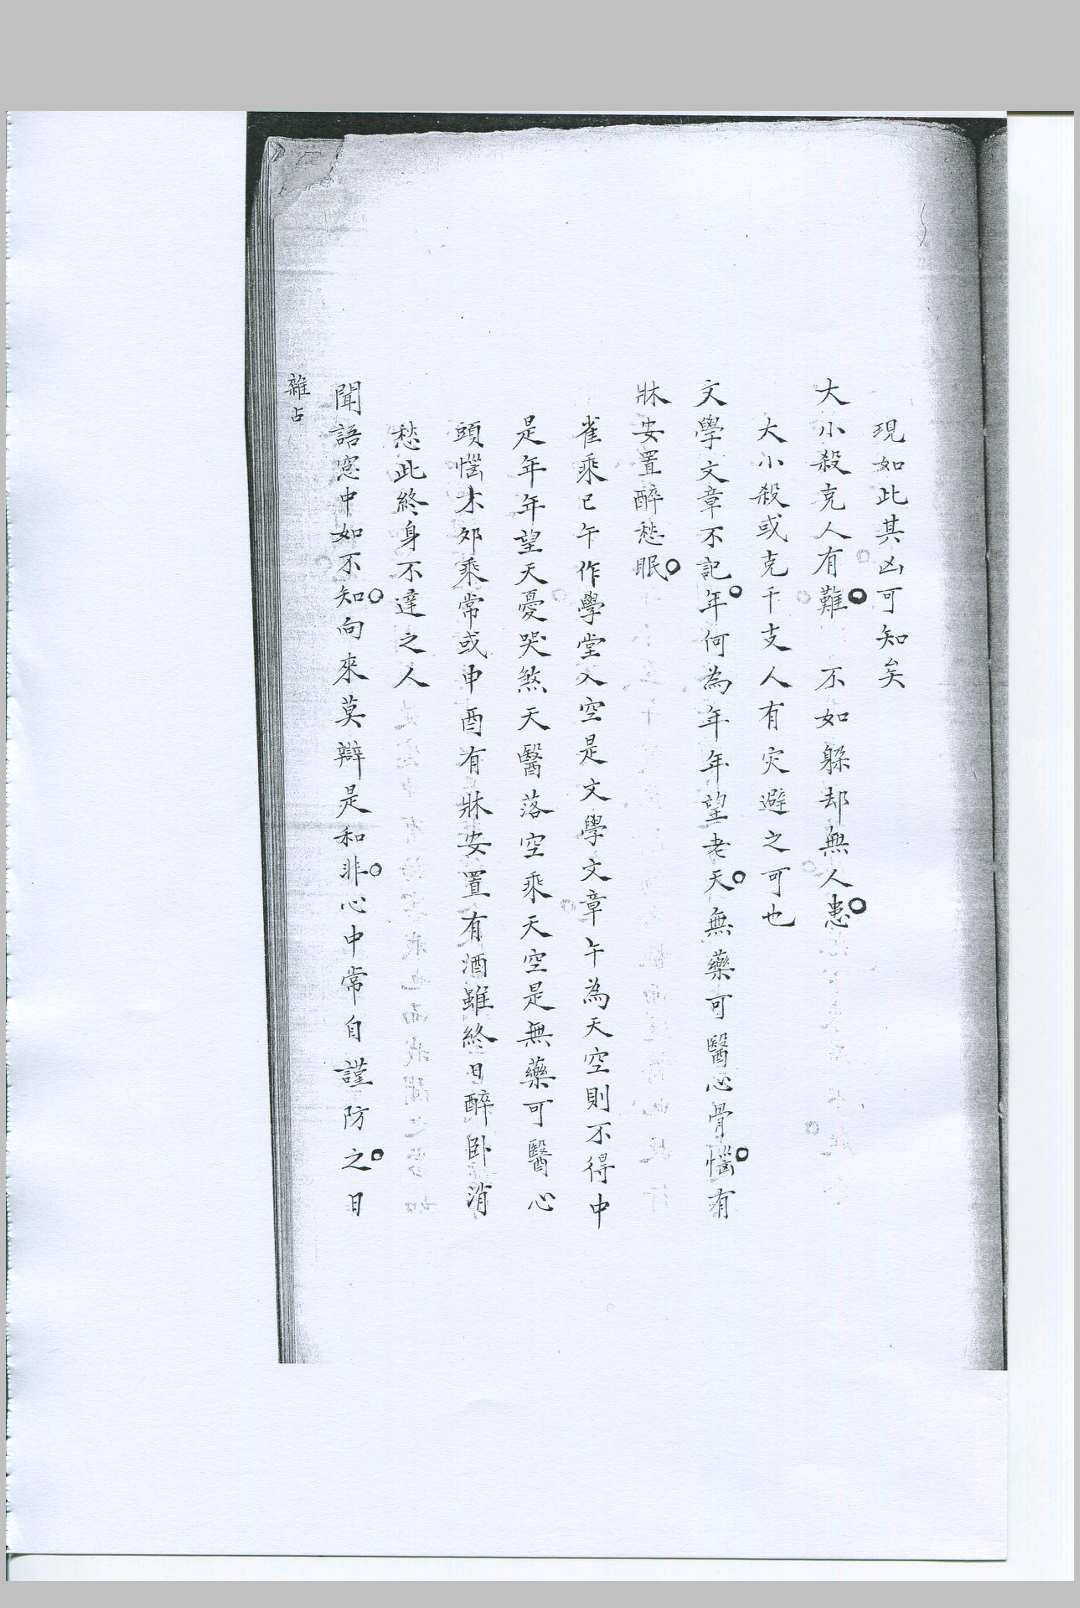 現如此其凶可知矣
大小殺克人有難。不如躲却無人患。
大小殺或克干支人有灾避之可也
文學文章不記年。何為年年望老天。無藥可醫心骨惱。有
牀安置醉愁眠。
雀乘巳午作學堂入空是文學文章午為天空則不得中
是年年望天憂哭煞天醫落空乘天空是無藥可醫心
頭惱木卯乘常或申酉有牀安置有酒雖終日醉卧消
愁此終身不達之人
聞語窓中如不知。向來莫辯是和非。心中常自謹防之。日
雜占